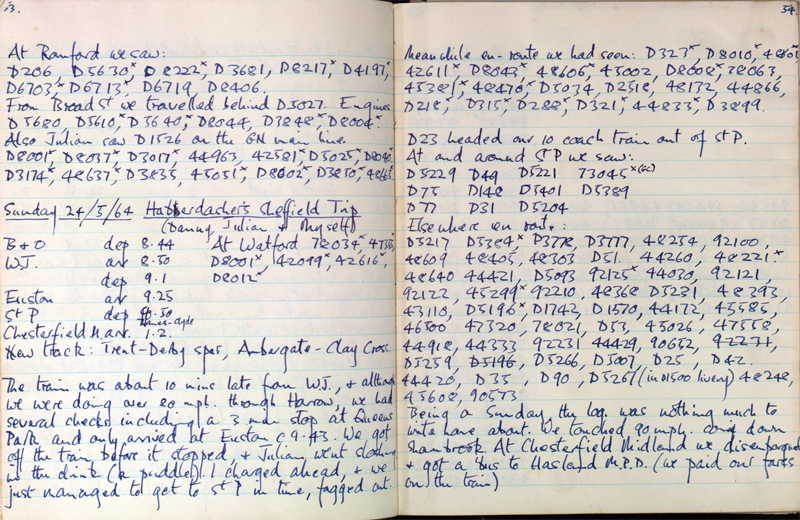 33.
At Romford we saw:
D206, D5630ˣ, D8222ˣ, D3681, D8217ˣ, D4197ˣ,
D6703ˣ, D6713ˣ, D6719, D8406.
From Broad St we travelled behind D5027. Engines
D5680, D5610ˣ, D3640ˣ, D8044, D3848ˣ, D8004ˣ
Also Julian saw D1526 on the GN main line.
D8001ˣ, D8037ˣ, D3017ˣ, 44963, 42581ˣ, D5025ˣ,
D3174ˣ, 48637ˣ, D3835, 45051ˣ, D8002ˣ, D3850ˣ,
Sunday 24/5/64 Haberdasher's Sheffield Trip
(Danny, Julian & Myself)
B & O dep 8.44 At Watford 78034ˣ,
W.J. arr 8.50 D8001ˣ, 42099ˣ, 42616ˣ,
dep 9.1 D8012ˣ
Euston arr 9.25
St P dep 9.50
Thames-Clyde
Chesterfield M. arr. 1.2.
New track: Trent-Derby spur, Ambergate-Clay Cross.
The train was about 10 mins late from W.J., & although
we were doing over 80 mph. through Harrow, we had
several checks including a 3 min stop at Queens
Park and only arrived at Euston c 9.43. We got
off the train before it stopped, & Julian went
in the drink (a puddle)! I charged ahead, & we
just managed to get to St P in time, fagged out.
34.
Meanwhile en-route we had seen: D327ˣ, D8010ˣ, 48601
42611ˣ D8043ˣ, 48606ˣ, 45002, D8008ˣ, 78063,
45381ˣ, 48476ˣ, D5034, D2518, 48132, 44866,
D218ˣ, D315ˣ, D288ˣ, D321ˣ, 44833ˣ, D3899.
D23 headed our 10 coach train out of St P.
At and around St P we saw:
D5229 D49 D5221 73045ˣ(SC)
D75 D148 D5401 D5389
D77 D31 D5204
Elsewhere en route:
D5217 D5384ˣ D3778, D3777, 48254, 92100,
48609 48405, 48303 D51. 44260, 48221ˣ
48640 44421, D5093 92125ˣ 44030, 92121,
92122, 45299ˣ 92210, 48368 D5231, 48393,
43110, D5196ˣ D1742, D1570, 44172, 45585,
46500 47320, 78021, D53, 45026, 47558,
44918, 44333 92231 44429, 90652, 92271,
D5259 D5196, D5266, D5007, D25, D42.
44420, D35, D90, D5267 (in D1500 livery) 48248,
43608, 90573
Being a Sunday, the log. was nothing much to
write home about. We touched 90 mph. going down
Sharnbrook. At Chesterfield Midland we disembarqued
& got a bus to Hasland M.P.D. (we paid our fares
on the train)